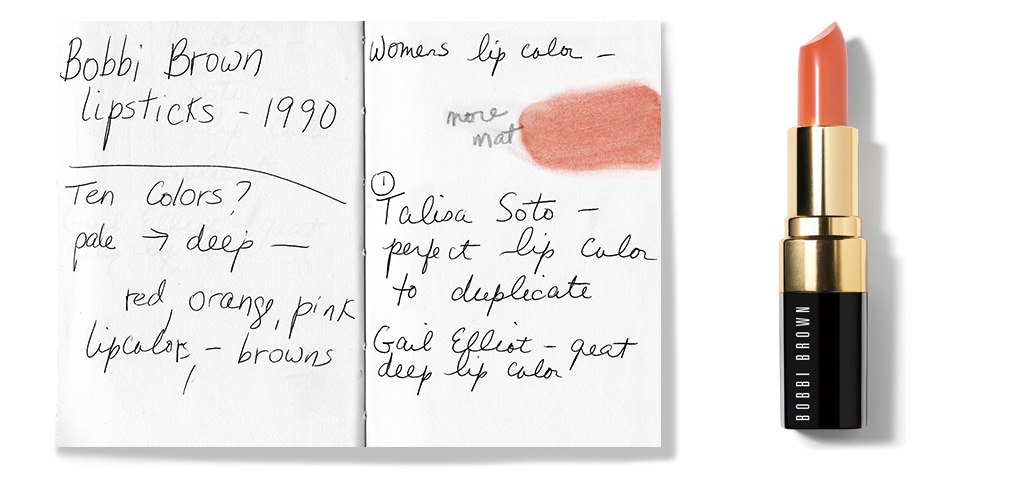 Bobbi Brown
lipsticks - 1990
Ten Colors?
pale → deep —
red, orange, pink
lipcolors, - browns
Womens lip color -
more
mat
①
Talisa Soto -
perfect lip color
to duplicate
Gail Elliot - great
deep lip color
BOBBI BROWN